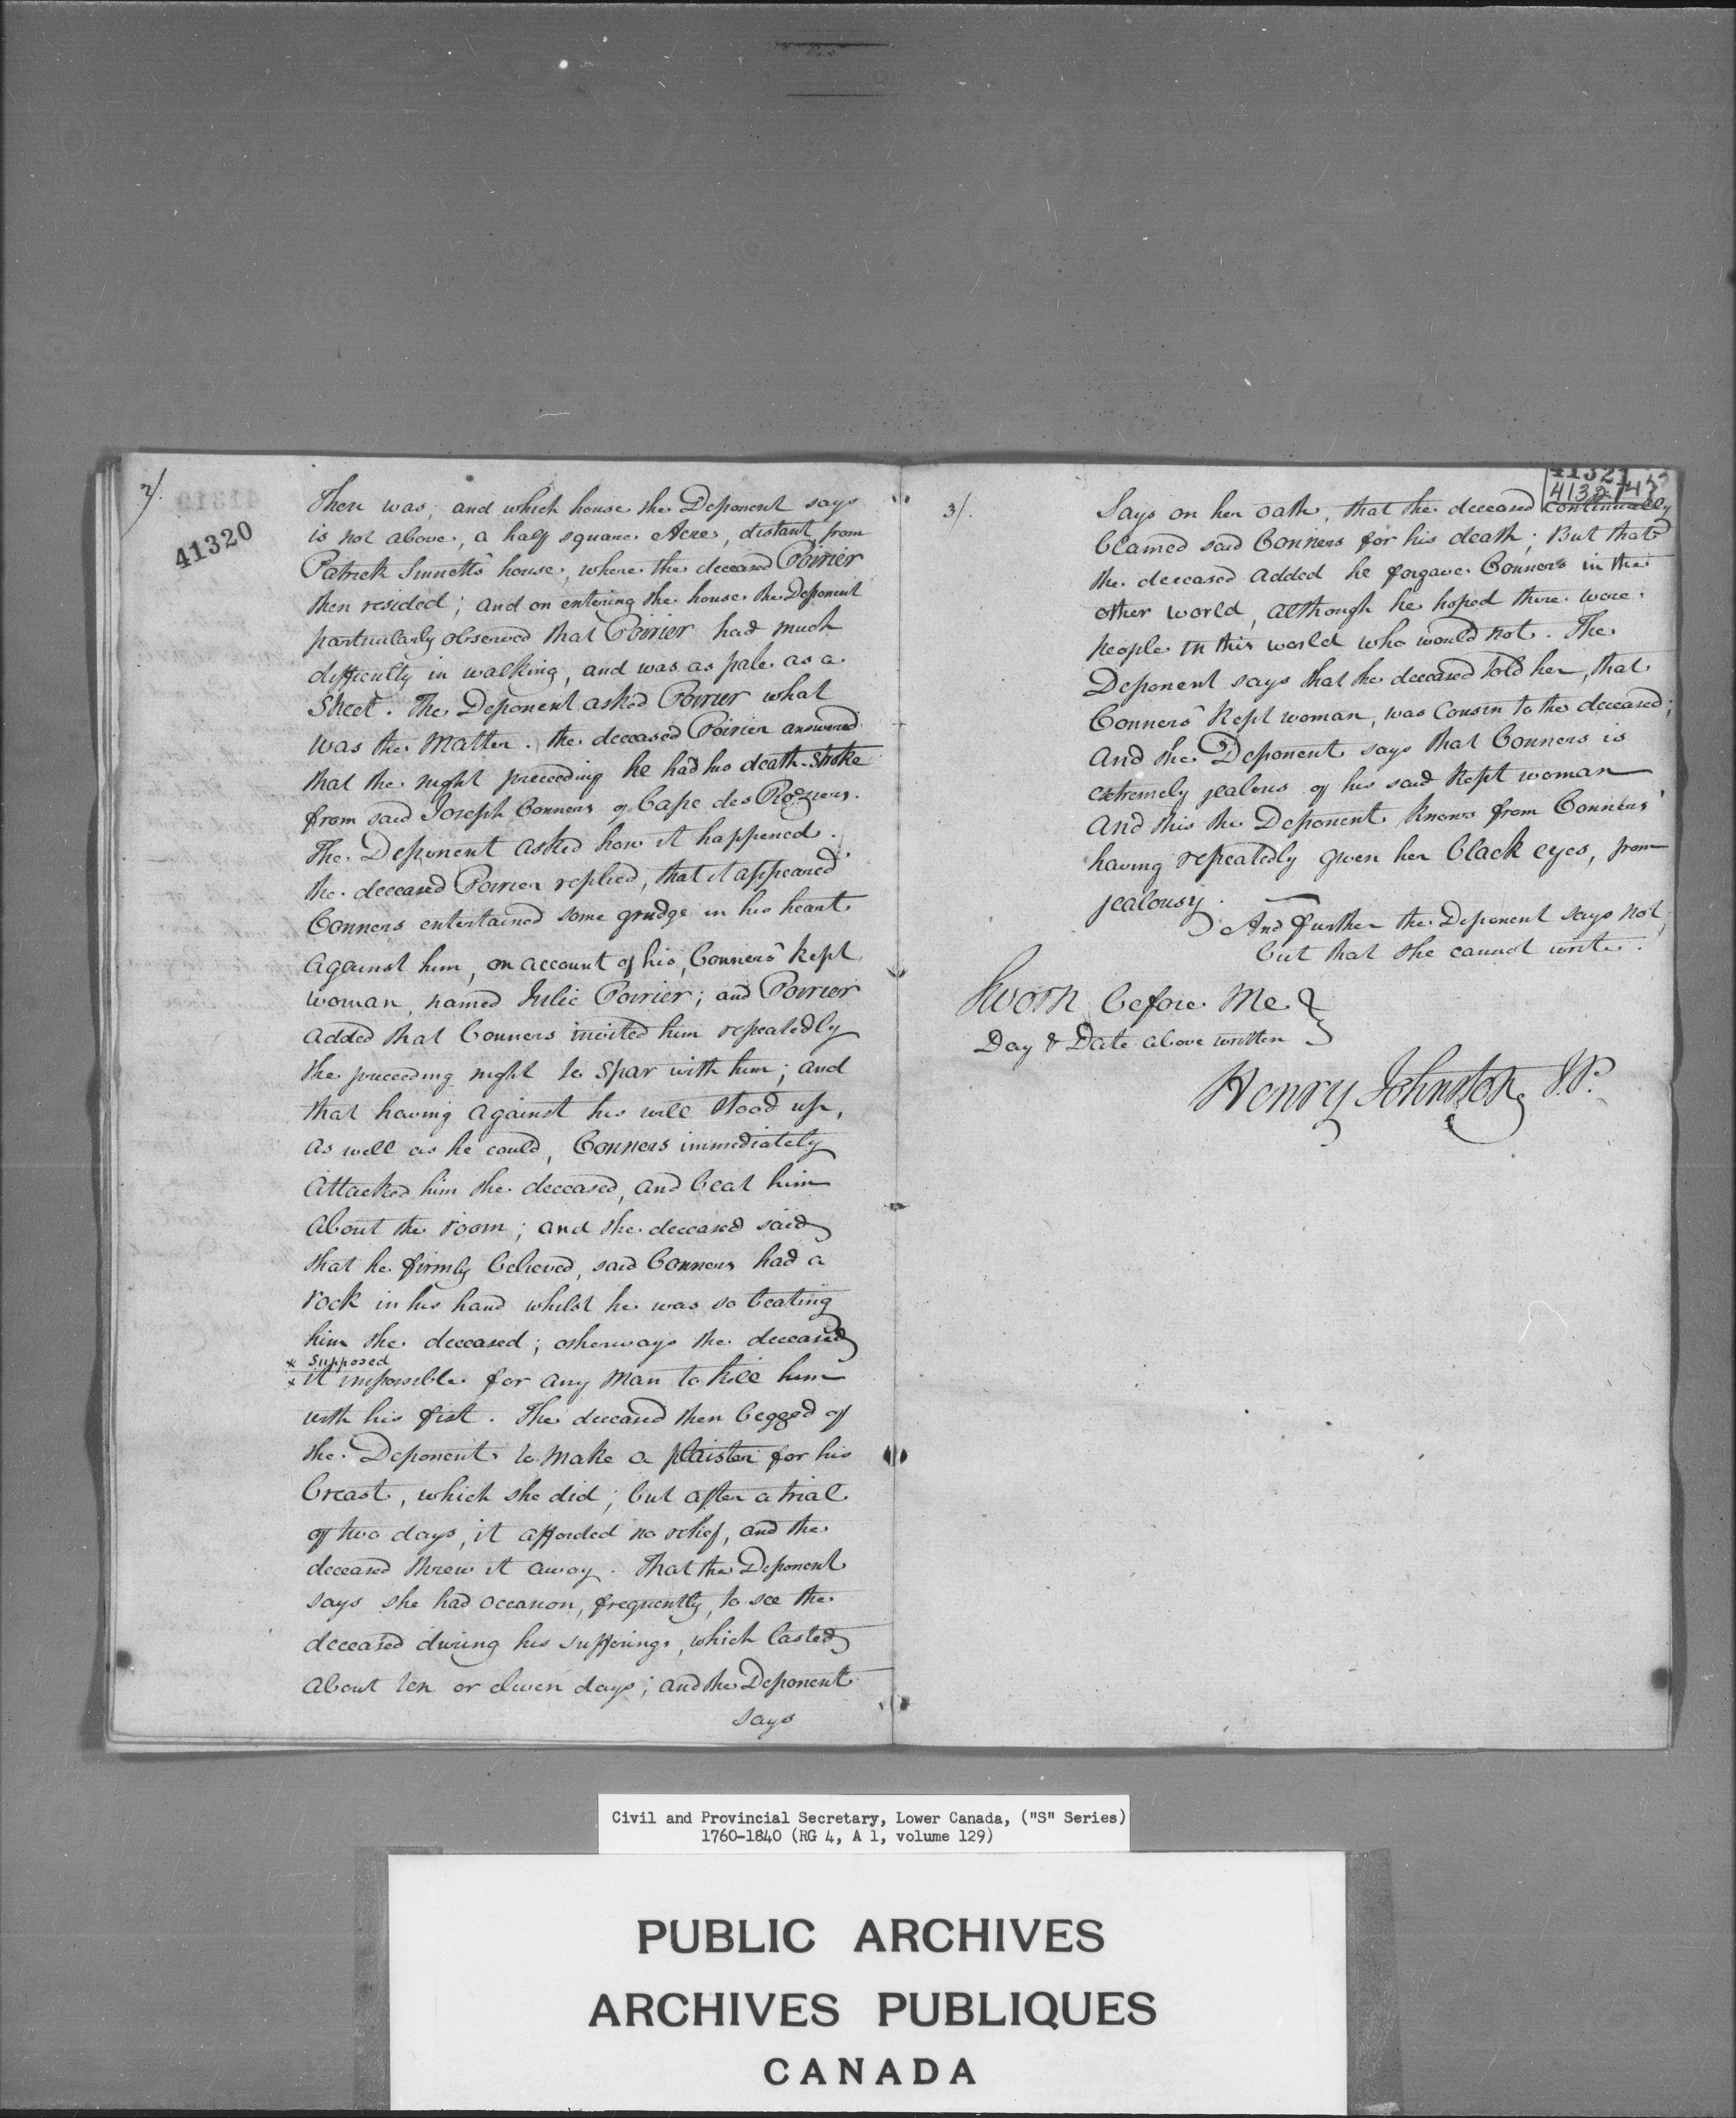 2/.
41320
Then was, and which house the Deponent says
is not above, a half square Acre, distant from
Patrick Sinnett's house, where the deceased Poirier
then resided; and on entering the house the Deponent
particularly observed that Poirier had much
difficulty in walking, and was as pale as a
Sheet. The Deponent asked Poirier what
was the Matter. the deceased Poirier answered
that the night preceeding he had his death-Stroke
from said Joseph Conners of Cape des Roziers.
The Deponent asked how it happened.
the deceased Poirier replied, that it appeared
Conners entertained some grudge in his heart
against him, on account of his, Conners' kept
woman, named Julie Poirier; and Poirier
added that Conners invited him repeatedly
the preceeding night to Spar with him; and
that having against his will stood up,
as well as he could, Conners immediately
attacked him the deceased, and beat him
about the room; and the deceased said
that he firmly believed, said Conners had a
rock in his hand whilst he was so beating
him the deceased; otherways the deceased
* supposed
* it impossible for any Man to kill him
with his fist. The deceased then begged of
the Deponent to make a plaister for his
breast, which she did; but after a trial
of two days, it afforded no relief, and the
deceased threw it away. That the Deponent
says she had occasion, frequently, to see the
deceased during his sufferings, which lasted
about ten or eleven days; and the Deponent
says
3/.
41321
Says on her oath, that the deceased continually
blamed said Conners for his death; But that
the deceased added he forgave Conners in the
other world, although he hoped there were
people in this world who would not. The
Deponent says that the deceased told her, that
Conners' kept woman, was Cousin to the deceased;
and the Deponent says that Conners is
extremely jealous of his said kept woman
and this the Deponent knows from Conners'
having repeatedly given her black eyes, from
jealousy.
And further the Deponent says not,
but that she cannot write.
Sworn before Me
Day & Date above written
Henry Johnston J.P.
Civil and Provincial Secretary, Lower Canada, ("S" Series)
1760-1840 (RG 4, A 1, volume 129)
PUBLIC ARCHIVES
ARCHIVES PUBLIQUES
CANADA